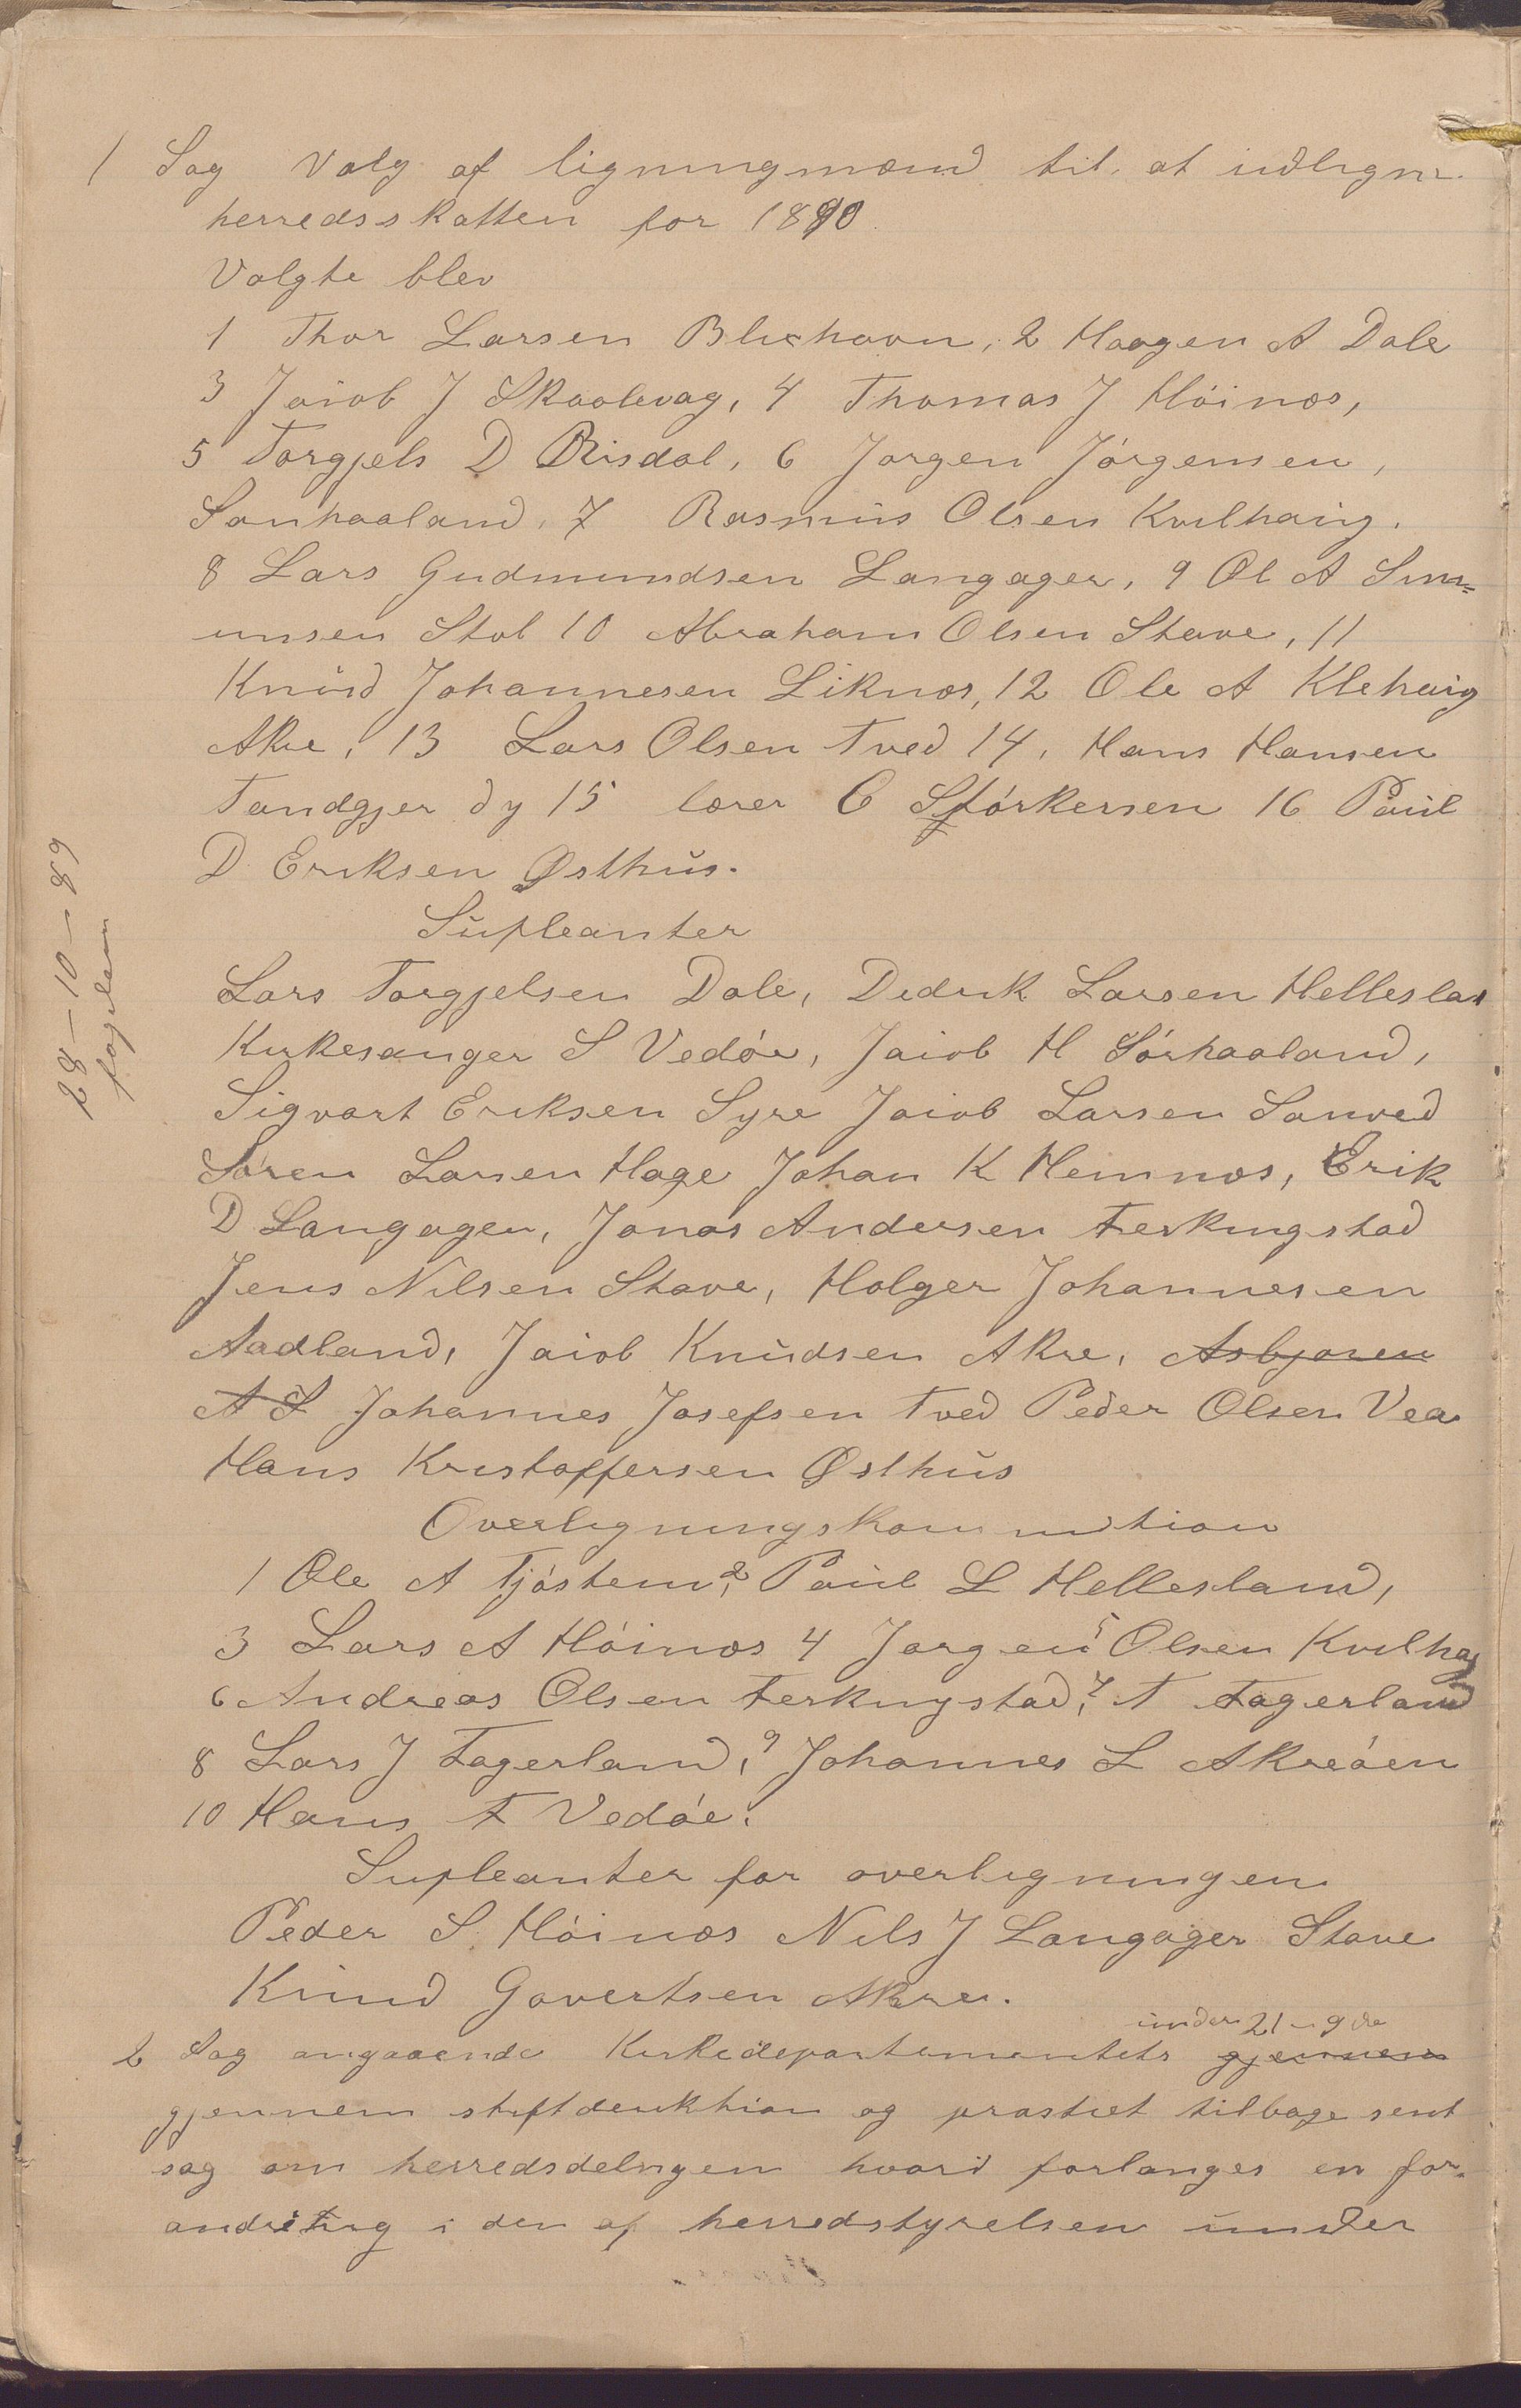 1 Sag Valg af ligningmænd til at udligne
herredsskatten for 1890
Valgte blev
1 Thor Larsen Blichavn, 2 Haagen A Dale
3 Jacob J Skaalevag, 4 Thomas J Hóinæs,
5 Torgjels D Risdal, 6 Jorgen Jórgensen,
Sørhaaland, 7 Rasmus Olsen Kvilhaug.
8 Lars Gudmundsen Langager, 9 Ol A Sim=
unsen Stol 10 Abraham Olsen Stave, 11
Knud Johannesen Liknæs, 12 Ole A Klehaug
Akre, 13 Lars Olsen Tved 14, Hans Hansen
Tandgjer dy 15 lærer C Stórkersen 16 Paul
D Eriksen Østhus.
Supleanter
Lars Torgjelsen Dale, Didrik Larsen Helleslan
Kirkesanger S Vedóe, Jacob H Sórhaaland,
Sigvart Eriksen Syre Jacob Larsen Sanved
Søren Larsen Hage Johan K Hemnæs, Erik
D Langager, Jonas Andersen Ferkingstad
Jens Nilsen Stave, Holger Johannesen
Aadland, Jacob Knudsen Akre, Asbjoren
A S Johannes Josefsen Tved Peder Olsen Vea
Hans Kristoffersen Østhus
Overligningskommission
1 Ole A Tjóstem, 2 Paul L Hellesland,
3 Lars A Hóinæs 4 Jorgen 5 Olsen Kvilhaug
6 Andreas Olsen Ferkingstad, 7 T Fagerland
8 Lars J Fagerland, 9 Johannes L Akreóen
10 Hans F Vedóe.
Supleanter for overligningen
Peder S. Hóinæs Nils J Langager Stave
Knud Govertsen Akre.
under 21-9 de
2 Sag angaaende Kirkedepartementets gjennem
gjennem stiftdirektion og prostiet tilbage sent
sag om herredsdelingen hvori forlanges en for-
andring i den af herredstyrelsen under
28-10-89